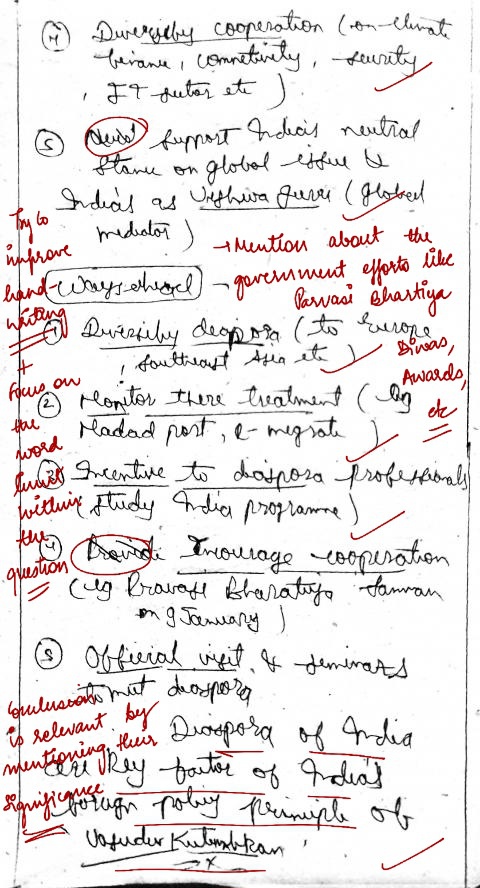 ④ Diversify cooperation (on climate
finance, connectivity, security
, IT sector etc)
⑤ support India's neutral
Stance on global issue &
India's as Vishwa Guru (Global
mediator)
Try to
improve
hand-
writing
+
Focus on
the
word
limit
within
the
question
→ Mention about the
government efforts like
Parvasi Bhartiya
Divas,
Awards,
etc
Ways ahead
① Diversify deapora (to Europe
, Southeast Asia etc)
② Monitor there treatment (eg
Madad port, e-migrate)
③ Incentive to diaspora professionals
(Study India programme)
④ Provide Encourage cooperation
(eg Pravasi Bharatiya Samman
on 9 January)
⑤ Official visit & seminars
to meet diaspora
Conclusion
is relevant by
mentioning their
significance
Diaspora of India
are Key factor of India's
foreign policy principle of
Vasudev Kutumbkam'